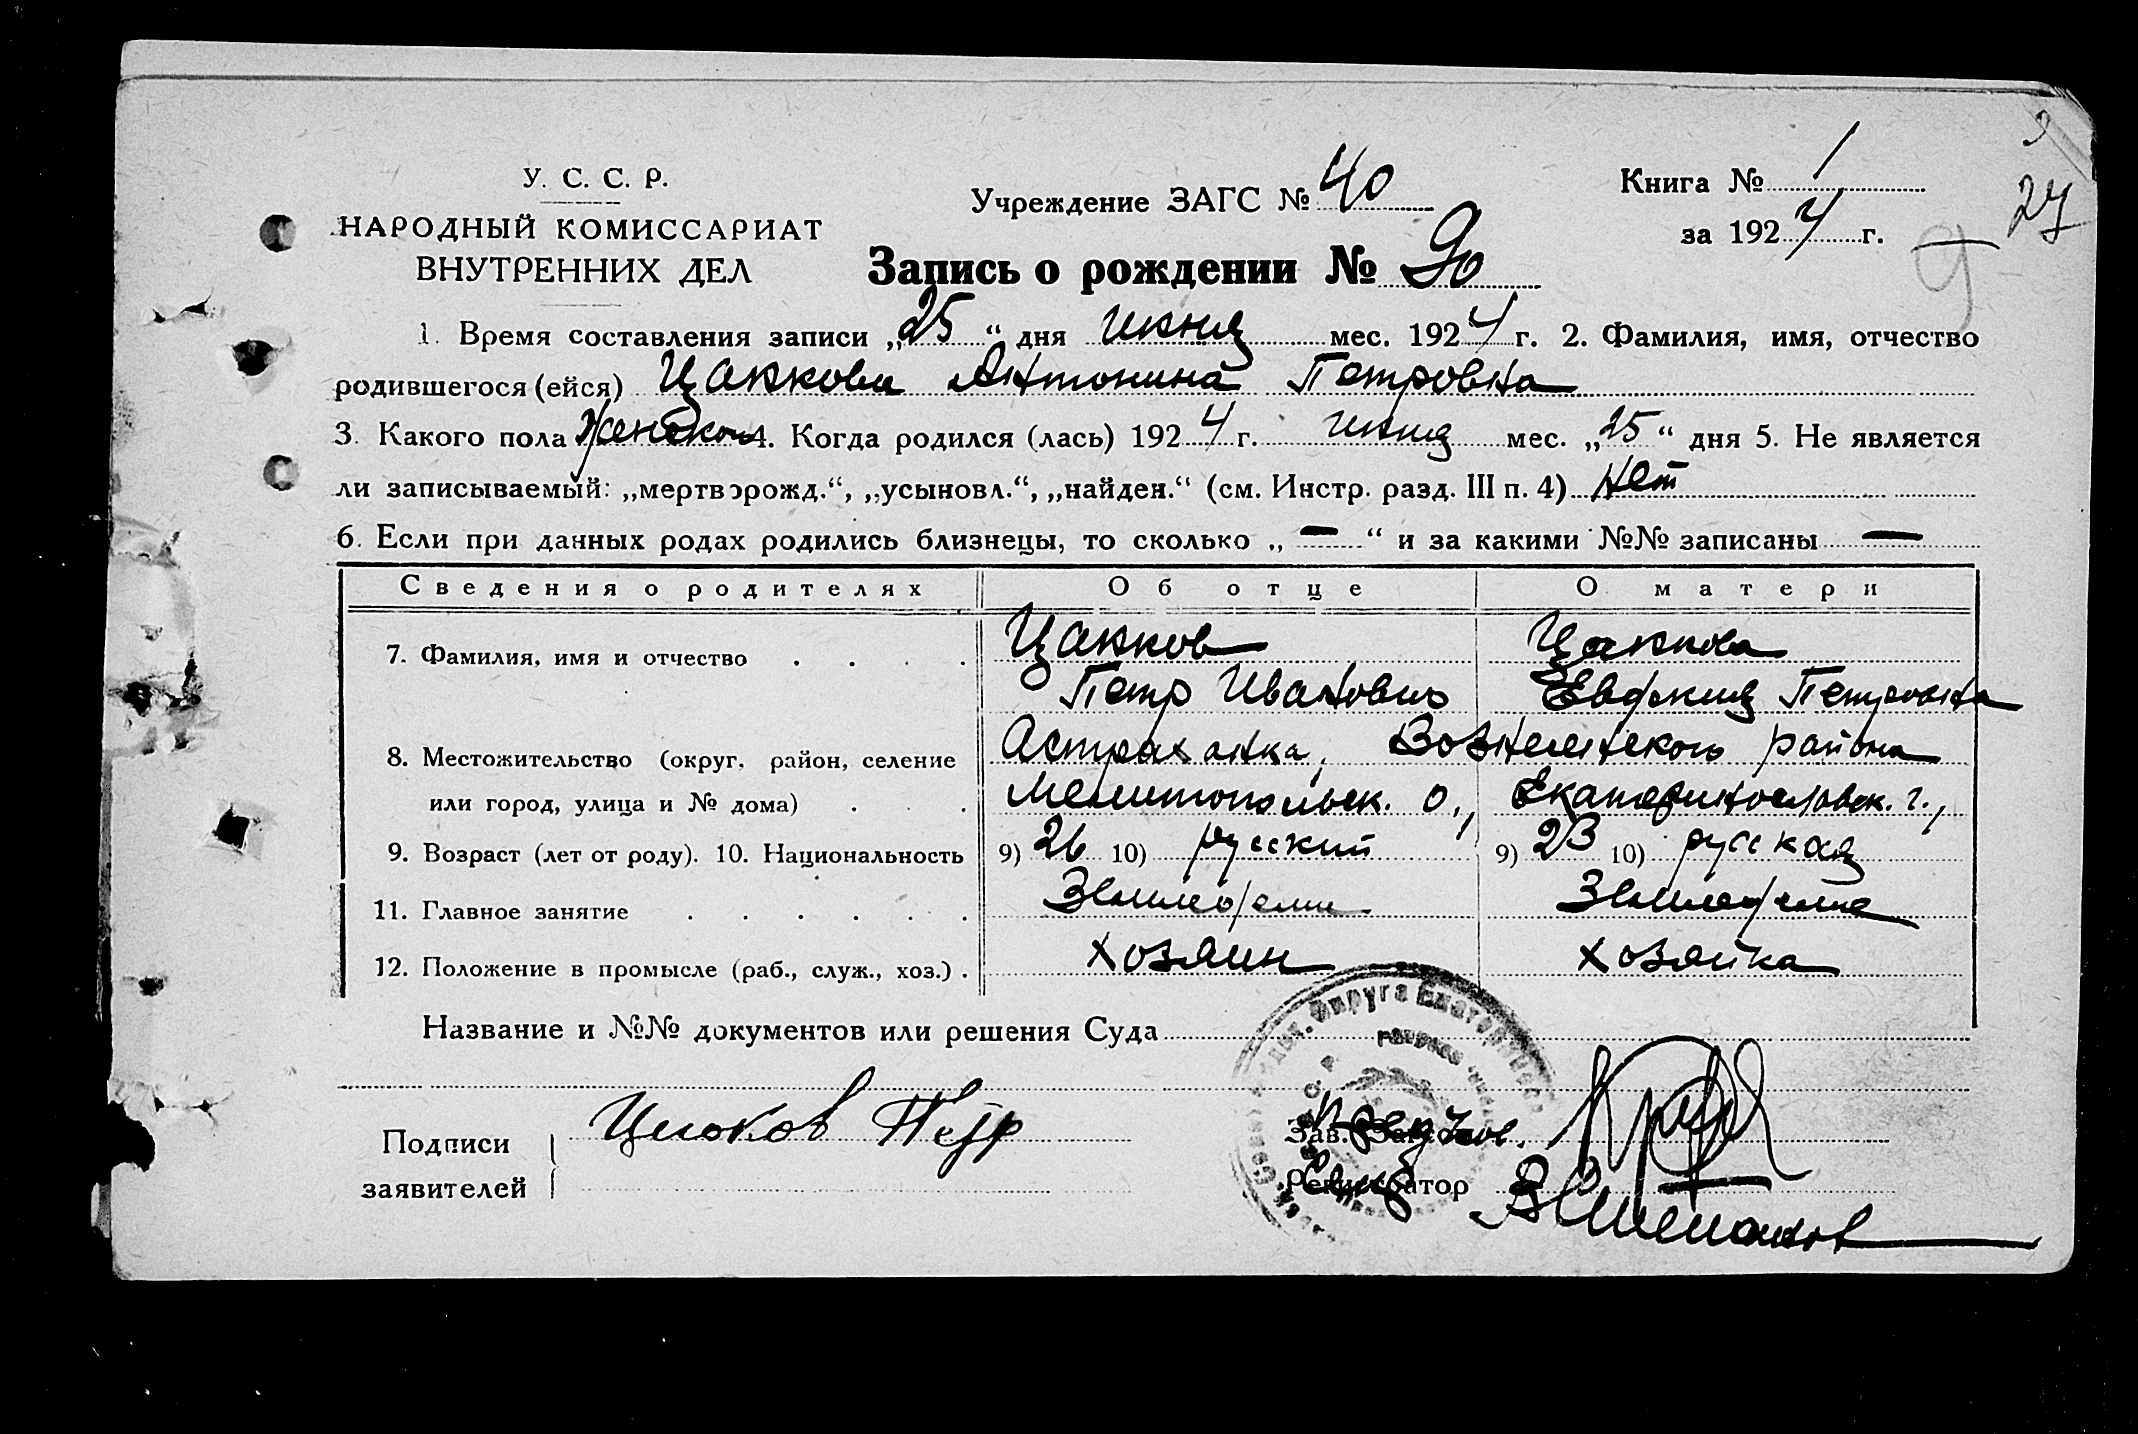 У. С. С. Р.
НАРОДНЫЙ КОМИССАРИАТ
ВНУТРЕННИХ ДЕЛ
Учреждение ЗАГС № 40
Книга № 1
за 1924 г.
27
9
Запись о рождении № 90
1. Время составления записи „25“ дня июня мес. 1924 г. 2. Фамилия, имя, отчество
родившегося (ейся) Цаккова Антонина Петровна
3. Какого пола женскои 4. Когда родился (лась) 1924 г. июня мес. „25“ дня 5. Не является
ли записываемый: „мертворожд.“, „усыновл.“, „найден.“ (см. Инстр. разд. III п. 4) Нет
6. Если при данных родах родились близнецы, то сколько „ — “ и за какими №№ записаны —
Сведения о родителях Об отце О матери
7. Фамилия, имя и отчество . . . . Цакков Цаккова
Петр Иванович Евдокия Петровна
8. Местожительство (округ, район, селение Астраханка, Вознесенского района
или город, улица и № дома) . . Мелитопольск. о., Екатеринославск. г.,
9. Возраст (лет от роду). 10. Национальность 9) 26 10) русский 9) 23 10) русская
11. Главное занятие . . . . . . Земледелие Земледелие
12. Положение в промысле (раб., служ., хоз.) . хозяин хозяйка
Название и №№ документов или решения Суда
Подписи
заявителей
Петр
Зав. Загсом
Регистратор